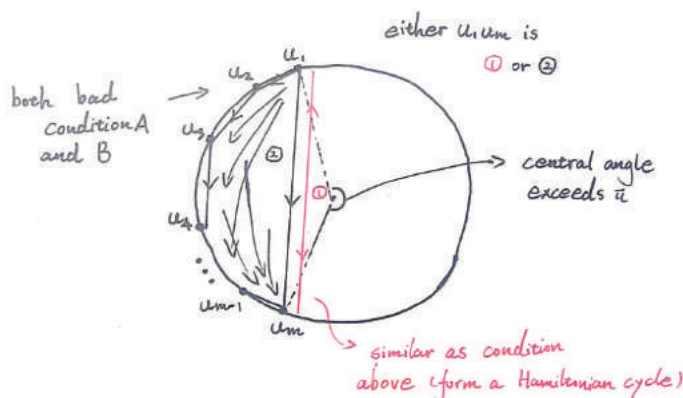 either u₁uₘ is
① or ②
u₁
u₂
both bad
condition A
and B
u₃
②
①
central angle
exceeds π
u₄
uₘ₋₁
uₘ
similar as condition
above (form a Hamiltonian cycle)